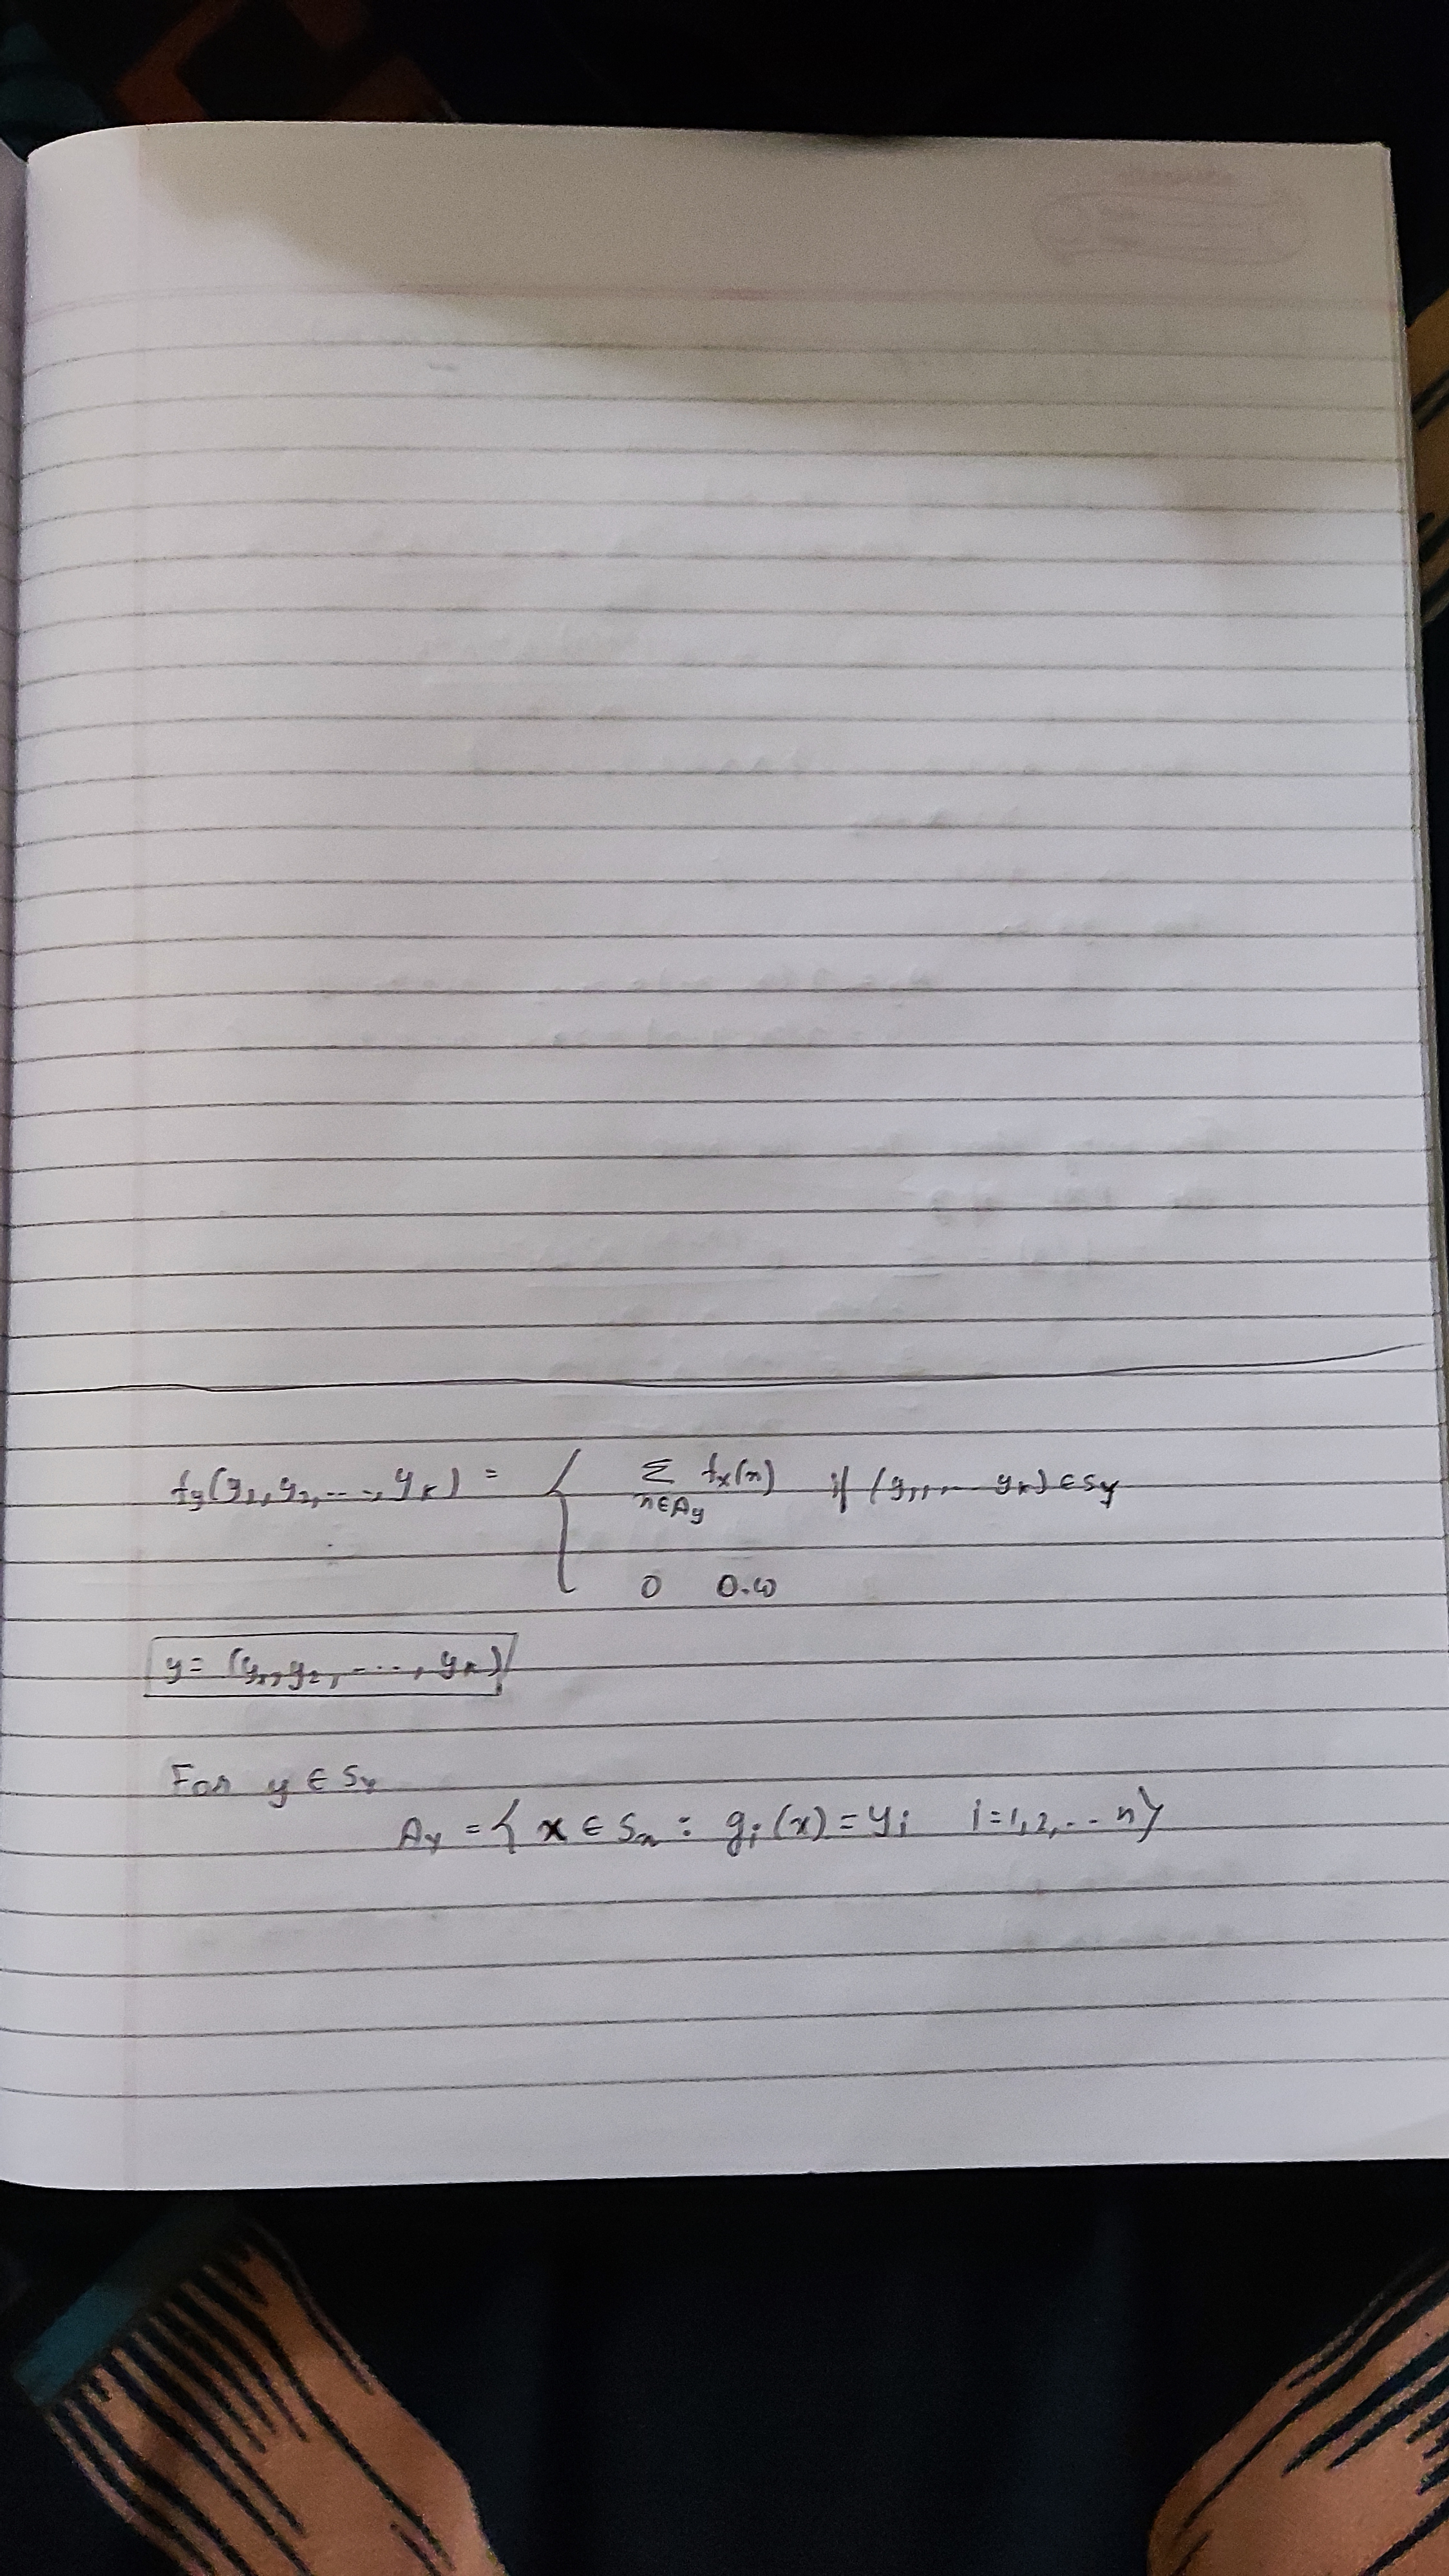 fy(y1, y2, ..., yk) = { Σ fx(x) if (y1, ... yk) ∈ Sy
x∈Ay
0 O.W
y = (y1, y2, ...., yk)
For y ∈ Sy
Ay = { x ∈ Sx : gi(x) = yi i=1,2,.. n}